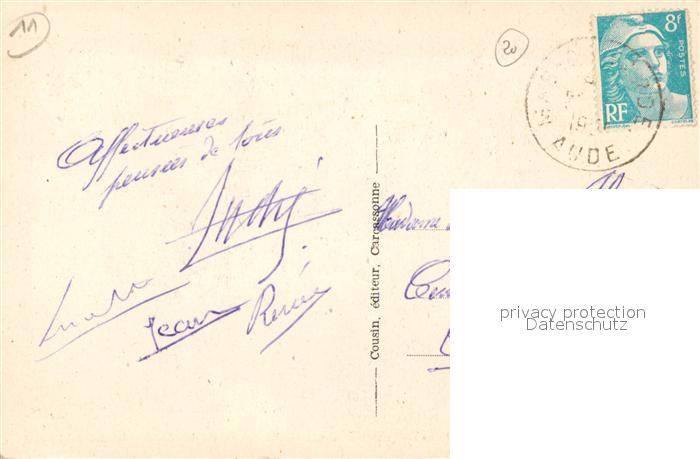 11
20
8f
POSTES
RF
AUDE
Affectueuses
pensées de tous
André
Jean Renée
Cousin, éditeur, Carcassonne
Madame
privacy protection
Datenschutz